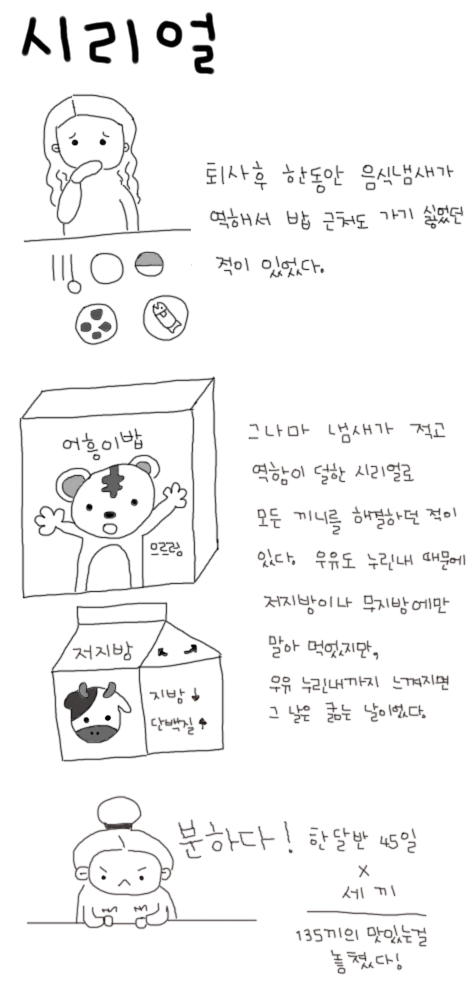 시리얼
퇴사후 한동안 음식냄새가
역해서 밥 근처도 가기 싫었던
적이 있었다.
어흥이밥
으르렁
그나마 냄새가 적고
역함이 덜한 시리얼로
모든 끼니를 해결하던 적이
있다. 우유도 누린내 때문에
저지방이나 무지방에만
말아 먹었지만,
우유 누린내까지 느껴지면
그 날은 굶는 날이었다.
저지방
지방↓
단백질↑
분하다!
한달반 45일
x
세 끼
135끼의 맛있는걸
놓쳤다!